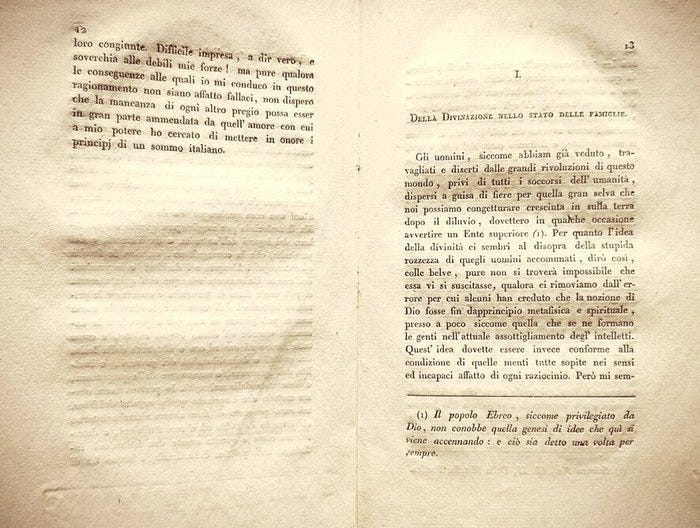 12
loro congiunte. Difficile impresa, a dir vero, e
soverchia alle debili mie forze! ma pure qualora
le conseguenze alle quali io mi conduco in questo
ragionamento non siano affatto fallaci, non dispero
che la mancanza di ogni altro pregio possa esser
in gran parte ammendata da quell'amore con cui
a mio potere ho cercato di mettere in onore i
principj di un sommo italiano.
13
I.
DELLA DIVINAZIONE NELLO STATO DELLE FAMIGLIE.
Gli uomini, siccome abbiam già veduto, tra-
vagliati e diserti dalle grandi rivoluzioni di questo
mondo, privi di tutti i soccorsi dell'umanità,
dispersi a guisa di fiere per quella gran selva che
noi possiamo congetturare cresciuta in sulla terra
dopo il diluvio, dovettero in qualche occasione
avvertire un Ente superiore (1). Per quanto l'idea
della divinità ci sembri al disopra della stupida
rozzezza di quegli uomini accomunati, dirò così,
colle belve, pure non si troverà impossibile che
essa vi si suscitasse, qualora ci rimoviamo dall'er-
rore per cui alcuni han creduto che la nozione di
Dio fosse fin dapprincipio metafisica e spirituale,
presso a poco siccome quella che se ne formano
le genti nell'attuale assottigliamento degl'intelletti.
Quest'idea dovette essere invece conforme alla
condizione di quelle menti tutte sopite nei sensi
ed incapaci affatto di ogni raziocinio. Però mi sem-
(1) Il popolo Ebreo, siccome privilegiato da
Dio, non conobbe quella genesi di idee che quì si
viene accennando: e ciò sia detto una volta per
sempre.